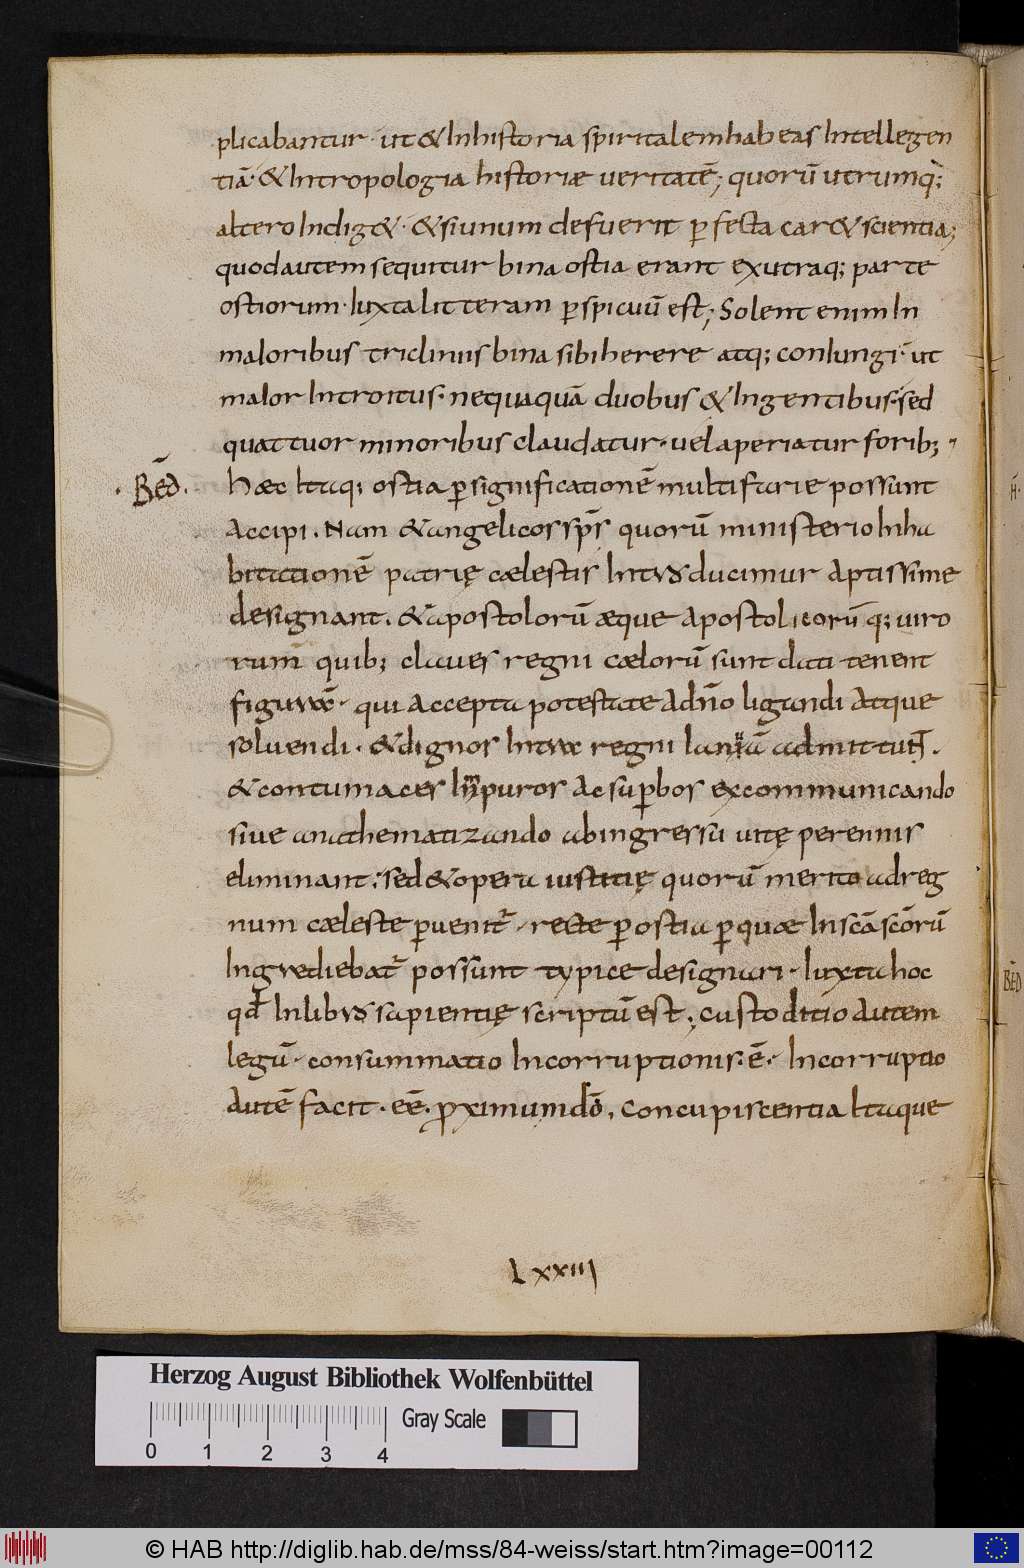 plicabantur · ut & Inhistoria spiritalem habeas Intellegen
tiā· & Intropologia historiæ veritatē; quorū utrumq;
altero Indig& · & si unum defuerit perfecta car& scientia;
quod autem sequitur bina ostia erant ex utraq; parte
ostiorum · Iuxta litteram perspicuū est; Solent enim In
maioribus tricliniis bina sibi herere atq; coniungi · ut
maior Introitus · nequaquā duobus & Ingentibus · sed
quattuor minoribus claudatur · vel aperiatur forib;
· Bēd · Hæc Itaq; ostia per significationē multifarie possunt
Accipi . Nam & angelicos sp̄s quorū ministerio Inha
bitationē patrię cælestis Introducimur Aptissime
designant . & apostolorū æque Apostolicorū q; viro
rum quib; claves regni cælorū sunt dati tenent
figuram · qui Accepta potestate A dn̄o ligandi Atque
solvendi · & dignos Intra regni Ianuā admittunt .
& contumaces Impuros Ac superbos excommunicando
sive anathematizando ab ingressu vitę perennis
eliminant; sed & opera iustitię quorū merito ad reg
num cæleste pervenit̄ · recte per ostia per quæ In scā scōrū
Ingrediebat̄ possunt typice designari · Iuxta hoc
qd̄ In libro sapientię scriptū est ; Custoditio Autem
legū · consummatio Incorruptionis · ē · Incorruptio
Autē facit · eē · proximum dō , Concupiscentia Itaque
LXXIII
H̄·
BĒD
Herzog August Bibliothek Wolfenbüttel
Gray Scale
0 1 2 3 4
© HAB http://diglib.hab.de/mss/84-weiss/start.htm?image=00112